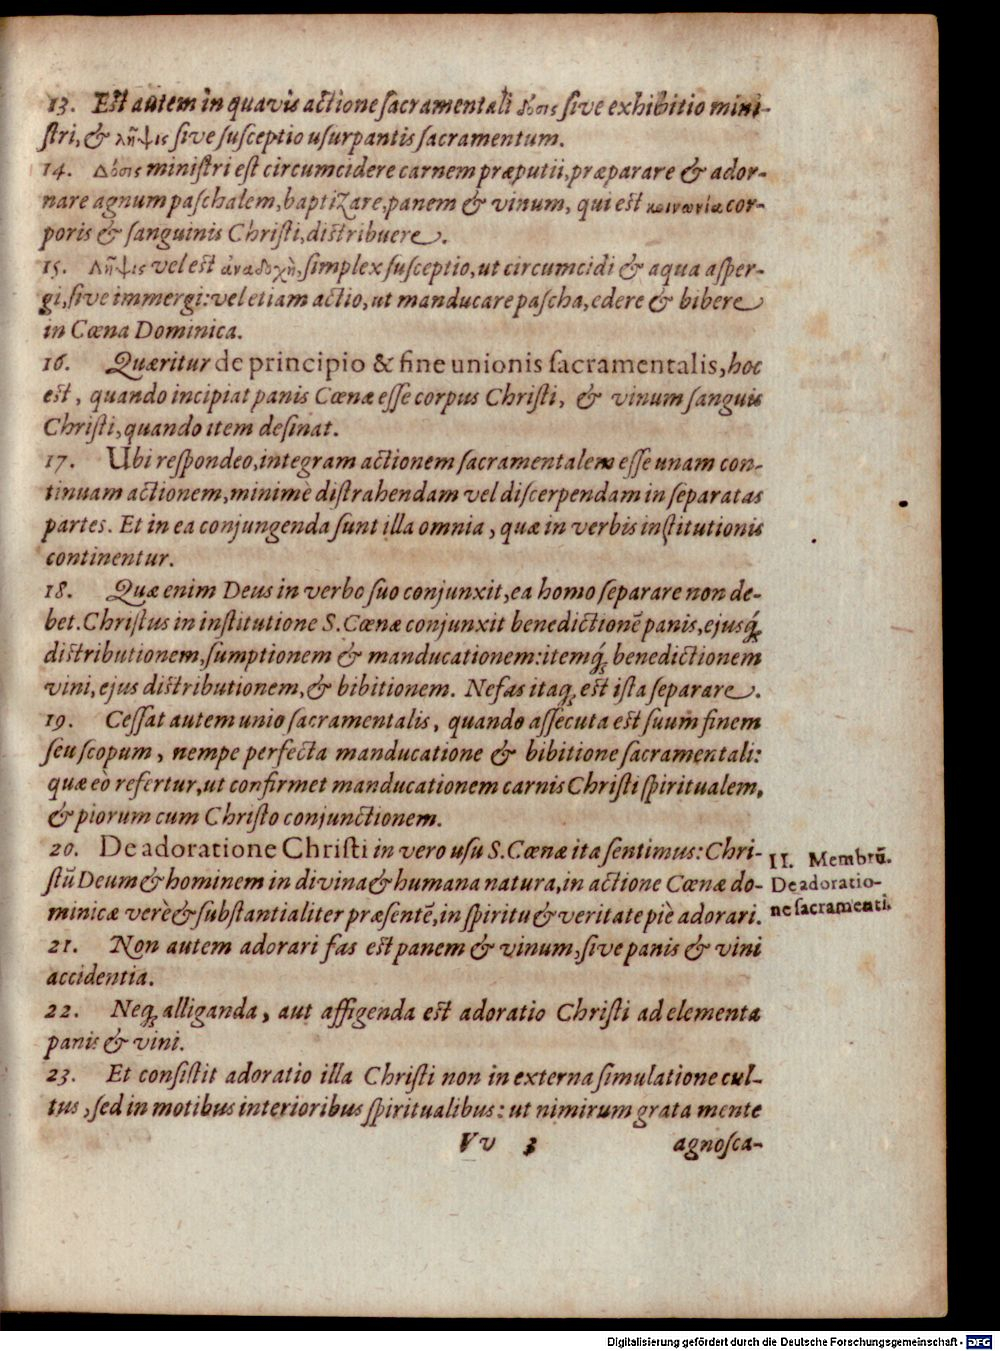 13. Est autem in quavis actione sacramentali δόσις sive exhibitio mini-
stri, & λῆψις sive susceptio usurpantis sacramentum.
14. Δόσις ministri est circumcidere carnem præputii, præparare & ador-
nare agnum paschalem, baptizare, panem & vinum, qui est κοινωνία cor-
poris & sanguinis Christi, distribuere.
15. Λῆψις vel est ἀναδοχὴ, simplex susceptio, ut circumcidi & aqua asper-
gi, sive immergi: vel etiam actio, ut manducare pascha, edere & bibere
in Cœna Dominica.
16. Quæritur de principio & fine unionis sacramentalis, hoc
est, quando incipiat panis Cœnæ esse corpus Christi, & vinum sanguis
Christi, quando item desinat.
17. Ubi respondeo, integram actionem sacramentalem esse unam con-
tinuam actionem, minimè distrahendam vel discerpendam in separatas
partes. Et in ea conjungenda sunt illa omnia, quæ in verbis institutionis
continentur.
18. Quæ enim Deus in verbo suo conjunxit, ea homo separare non de-
bet. Christus in institutione S. Cœnæ conjunxit benedictionē panis, ejusq́;
distributionem, sumptionem & manducationem: itemq́; benedictionem
vini, ejus distributionem, & bibitionem. Nefas itaq; est ista separare.
19. Cessat autem unio sacramentalis, quando assecuta est suum finem
seu scopum, nempe perfecta manducatione & bibitione sacramentali:
quæ eò refertur, ut confirmet manducationem carnis Christi spiritualem,
& piorum cum Christo conjunctionem.
20. De adoratione Christi in vero usu S. Cœnæ ita sentimus: Chri-
stū Deum & hominem in divina & humana natura, in actione Cœnæ do-
minicæ verè & substantialiter præsentē, in spiritu & veritate piè adorari.
II. Membrū.
De adoratio-
ne sacramenti.
21. Non autem adorari fas est panem & vinum, sive panis & vini
accidentia.
22. Neq; alliganda, aut affigenda est adoratio Christi ad elementa
panis & vini.
23. Et consistit adoratio illa Christi non in externa simulatione cul-
tus, sed in motibus interioribus spiritualibus: ut nimirum grata mente
Vv 3 agnosca-
Digitalisierung gefördert durch die Deutsche Forschungsgemeinschaft - DFG